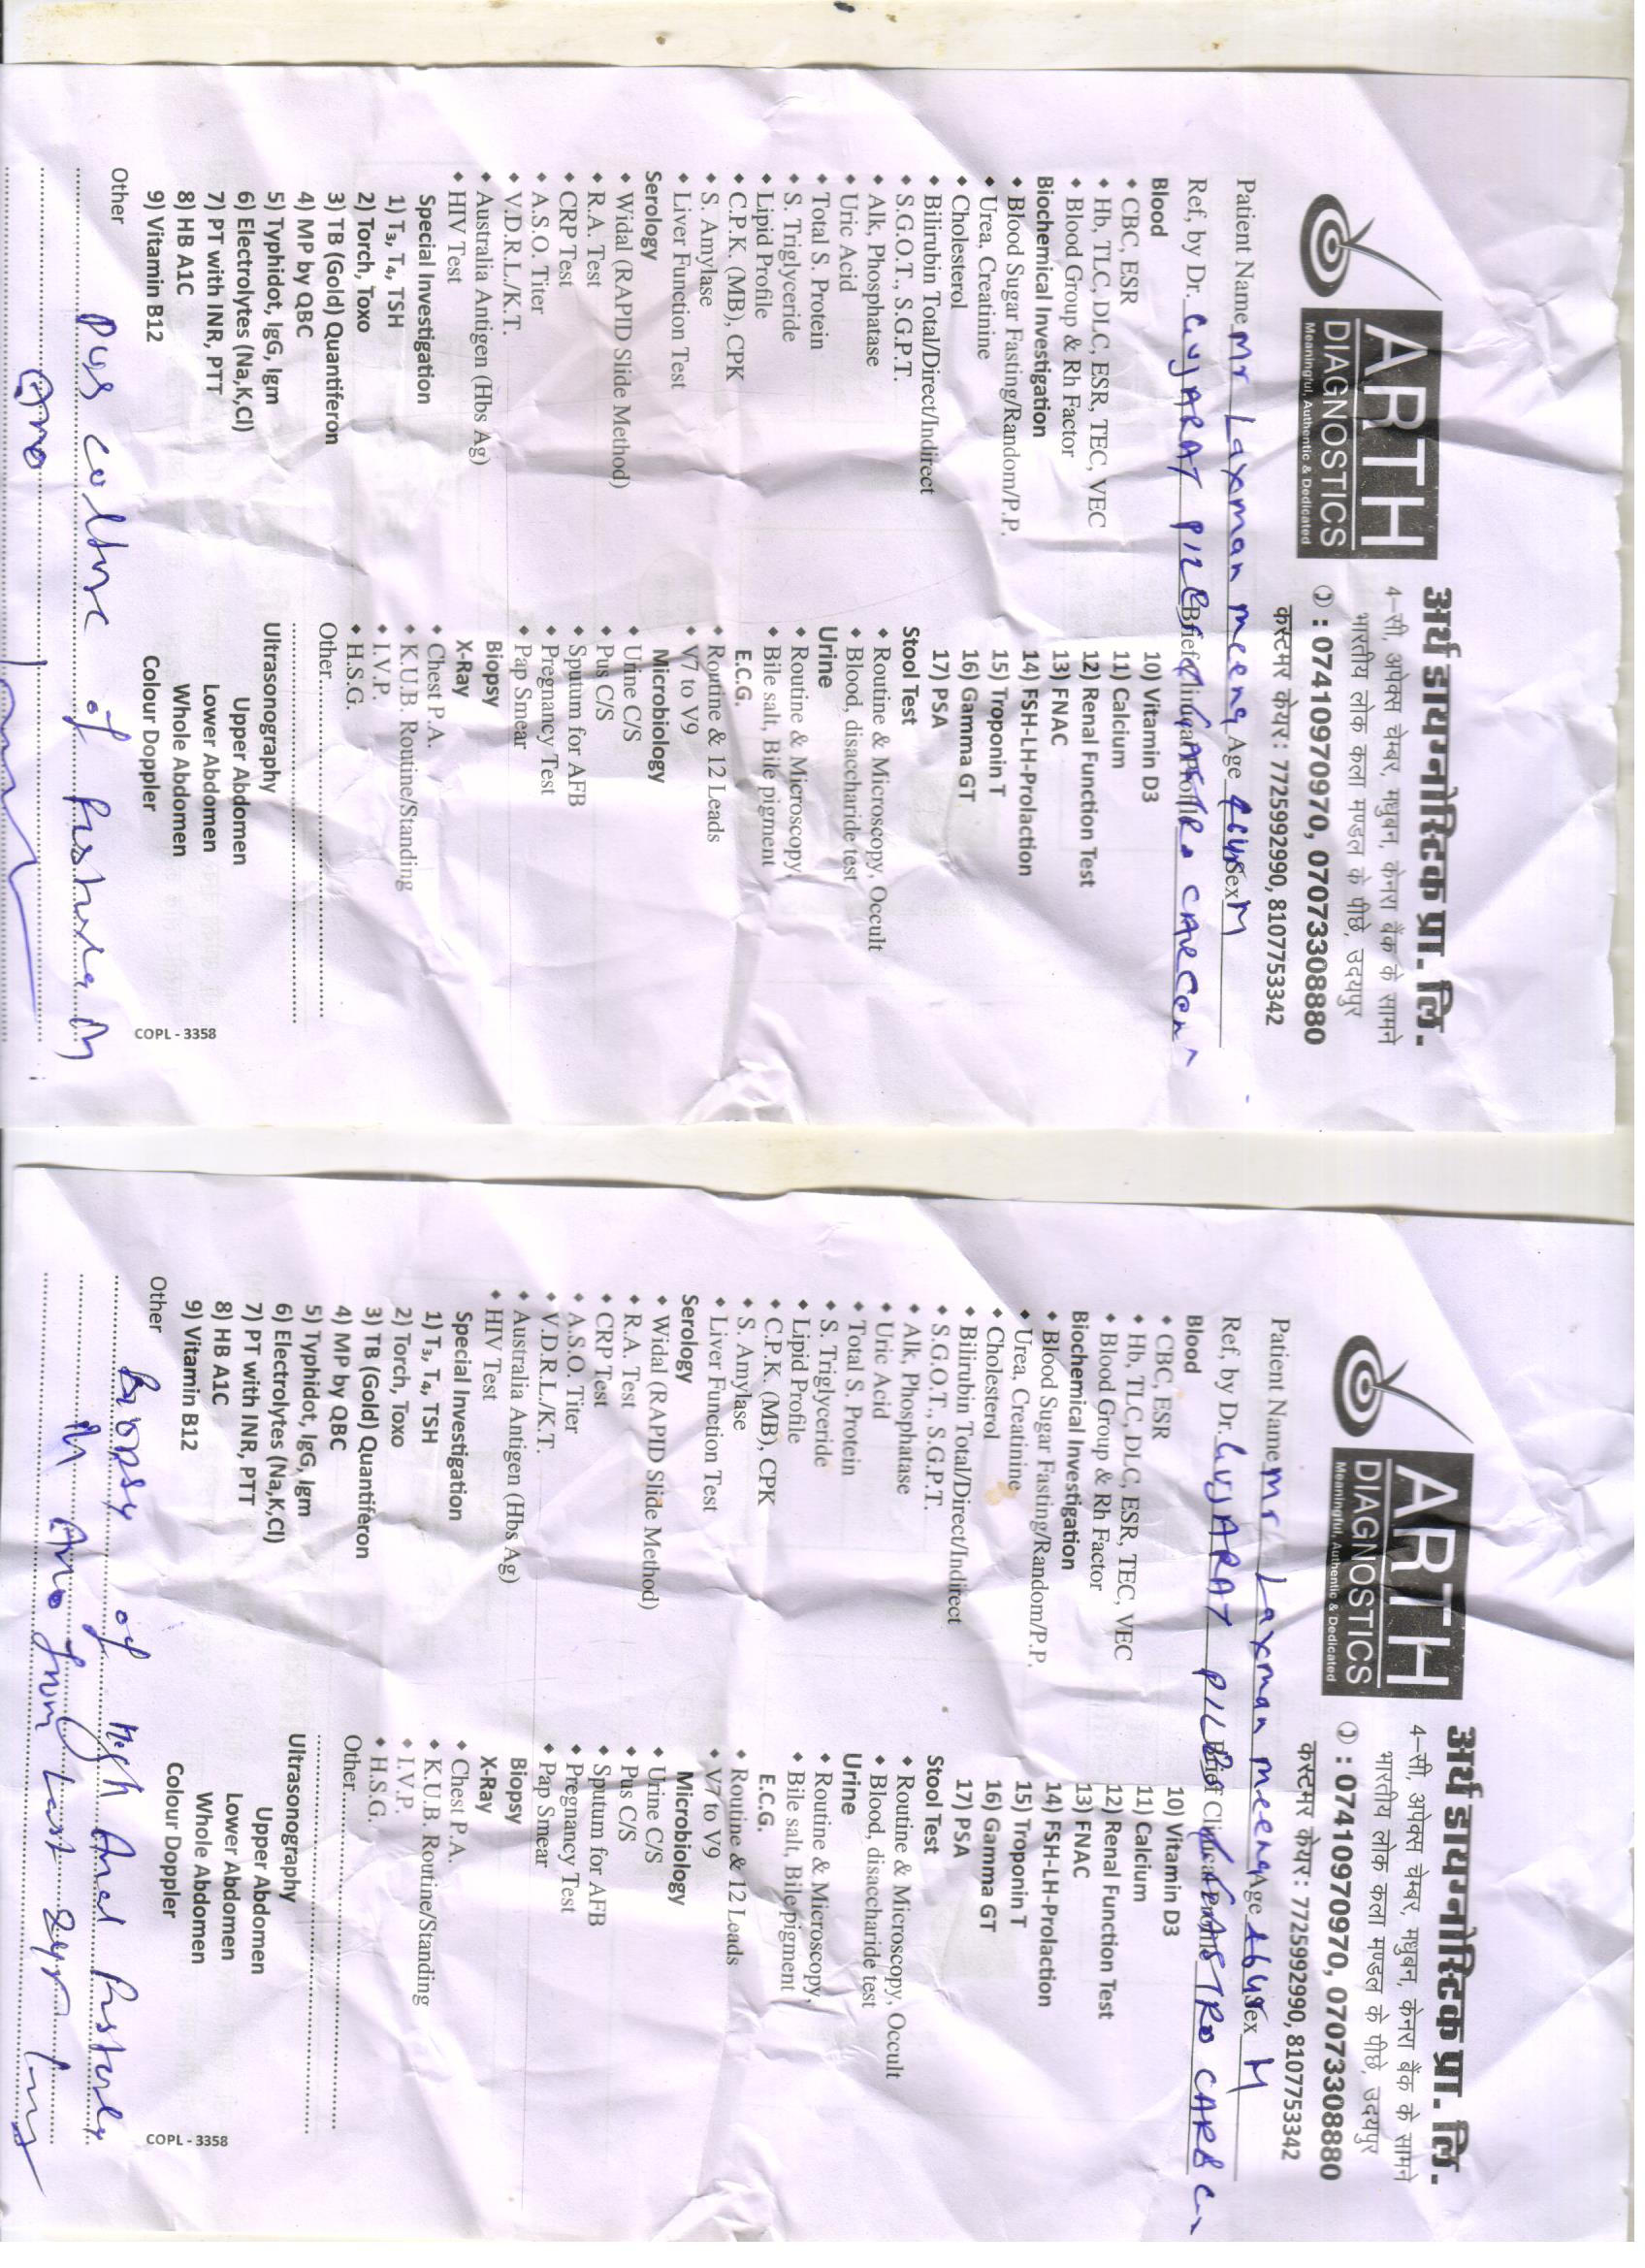 ARTH
DIAGNOSTICS
Meaningful, Authentic & Dedicated
अर्थ डायग्नोस्टिक प्रा. लि.
4-सी, अपेक्स चेम्बर, मधुबन, केनरा बैंक के सामने
भारतीय लोक कला मण्डल के पीछे, उदयपुर
: 07410970970, 07073308880
कस्टमर केयर : 7725992990, 8107753342
Patient Name Mr Laxman meena Age 46yr Sex M
Ref, by Dr. GUJARAT PILES GASTRO CARE
Blood
• CBC, ESR
• Hb, TLC, DLC, ESR, TEC, VEC
• Blood Group & Rh Factor
Biochemical Investigation
• Blood Sugar Fasting/Random/P.P.
• Urea, Creatinine
• Cholesterol
• Bilirubin Total/Direct/Indirect
• S.G.O.T., S.G.P.T.
• Alk, Phosphatase
• Uric Acid
• Total S. Protein
• S. Triglyceride
• Lipid Profile
• C.P.K. (MB), CPK
• S. Amylase
• Liver Function Test
Serology
• Widal (RAPID Slide Method)
• R.A. Test
• CRP Test
• A.S.O. Titer
• V.D.R.L./K.T.
• Australia Antigen (Hbs Ag)
• HIV Test
Special Investigation
1) T₃, T₄, TSH
2) Torch, Toxo
3) TB (Gold) Quantiferon
4) MP by QBC
5) Typhidot, IgG, Igm
6) Electrolytes (Na,K,Cl)
7) PT with INR, PTT
8) HB A1C
9) Vitamin B12
10) Vitamin D3
11) Calcium
12) Renal Function Test
13) FNAC
14) FSH-LH-Prolaction
15) Troponin T
16) Gamma GT
17) PSA
Stool Test
• Routine & Microscopy, Occult
• Blood, disaccharide test
Urine
• Routine & Microscopy,
• Bile salt, Bile pigment
E.C.G.
• Routine & 12 Leads
• V7 to V9
Microbiology
• Urine C/S
• Pus C/S
• Sputum for AFB
• Pregnancy Test
• Pap Smear
Biopsy
X-Ray
• Chest P.A.
• K.U.B. Routine/Standing
• I.V.P.
• H.S.G.
Other
Ultrasonography
Upper Abdomen
Lower Abdomen
Whole Abdomen
Colour Doppler
COPL - 3358
Other
Pus culture of fistula in
Ano
ARTH
DIAGNOSTICS
Meaningful, Authentic & Dedicated
अर्थ डायग्नोस्टिक प्रा. लि.
4-सी, अपेक्स चेम्बर, मधुबन, केनरा बैंक के सामने
भारतीय लोक कला मण्डल के पीछे, उदयपुर
: 07410970970, 07073308880
कस्टमर केयर : 7725992990, 8107753342
Patient Name Mr Laxman meena Age 46yr Sex M
Ref, by Dr. GUJARAT PILES GASTRO CARE
Blood
• CBC, ESR
• Hb, TLC, DLC, ESR, TEC, VEC
• Blood Group & Rh Factor
Biochemical Investigation
• Blood Sugar Fasting/Random/P.P.
• Urea, Creatinine
• Cholesterol
• Bilirubin Total/Direct/Indirect
• S.G.O.T., S.G.P.T.
• Alk, Phosphatase
• Uric Acid
• Total S. Protein
• S. Triglyceride
• Lipid Profile
• C.P.K. (MB), CPK
• S. Amylase
• Liver Function Test
Serology
• Widal (RAPID Slide Method)
• R.A. Test
• CRP Test
• A.S.O. Titer
• V.D.R.L./K.T.
• Australia Antigen (Hbs Ag)
• HIV Test
Special Investigation
1) T₃, T₄, TSH
2) Torch, Toxo
3) TB (Gold) Quantiferon
4) MP by QBC
5) Typhidot, IgG, Igm
6) Electrolytes (Na,K,Cl)
7) PT with INR, PTT
8) HB A1C
9) Vitamin B12
10) Vitamin D3
11) Calcium
12) Renal Function Test
13) FNAC
14) FSH-LH-Prolaction
15) Troponin T
16) Gamma GT
17) PSA
Stool Test
• Routine & Microscopy, Occult
• Blood, disaccharide test
Urine
• Routine & Microscopy,
• Bile salt, Bile pigment
E.C.G.
• Routine & 12 Leads
• V7 to V9
Microbiology
• Urine C/S
• Pus C/S
• Sputum for AFB
• Pregnancy Test
• Pap Smear
Biopsy
X-Ray
• Chest P.A.
• K.U.B. Routine/Standing
• I.V.P.
• H.S.G.
Other
Ultrasonography
Upper Abdomen
Lower Abdomen
Whole Abdomen
Colour Doppler
COPL - 3358
Other
Biopsy of High Anal fistula
in Ano from Last 2yr